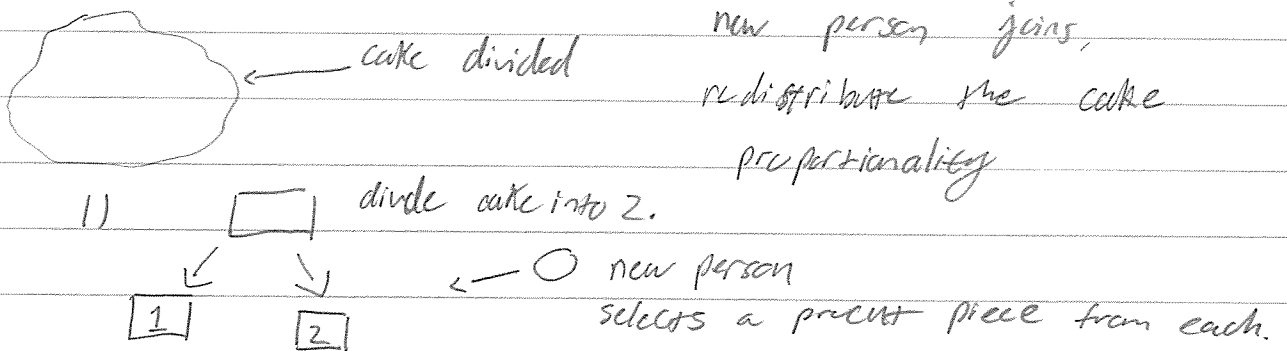 cake divided
new person joins,
redistribute the cake
proportionality
1) divide cake into 2.
new person
1 2 selects a precut piece from each.